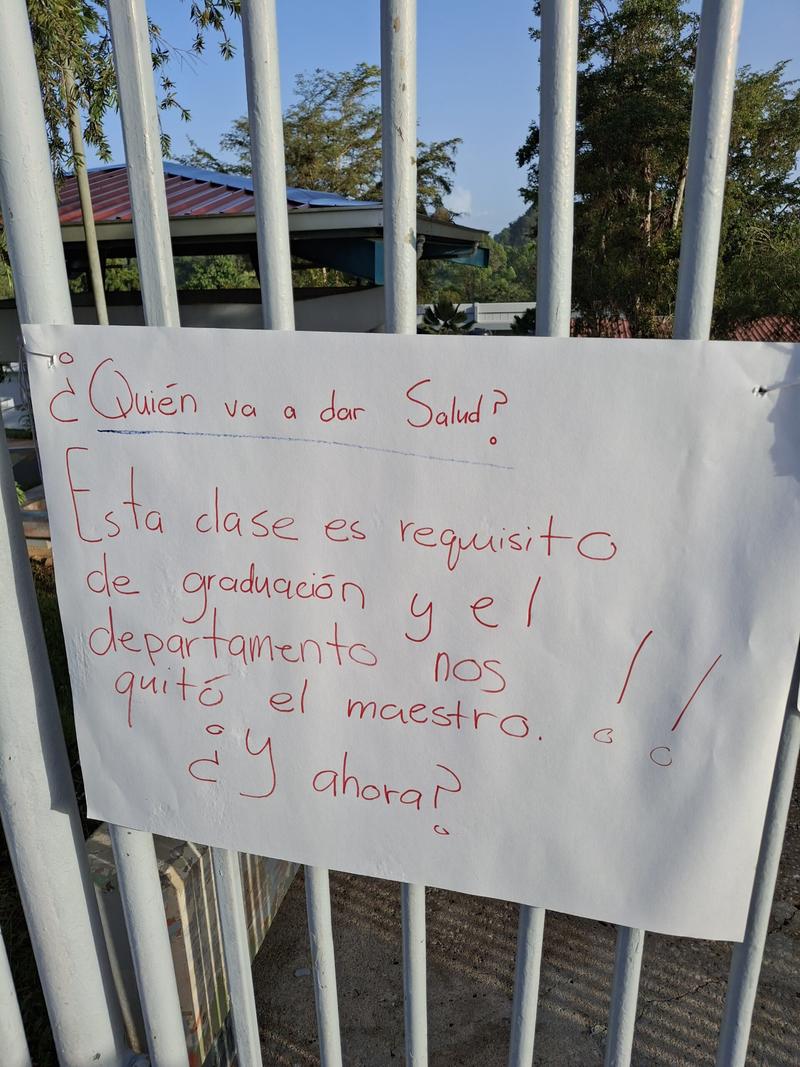 ¿Quién va a dar Salud?
Esta clase es requisito
de graduación y el
departamento nos
quitó el maestro. !!
¿Y ahora?